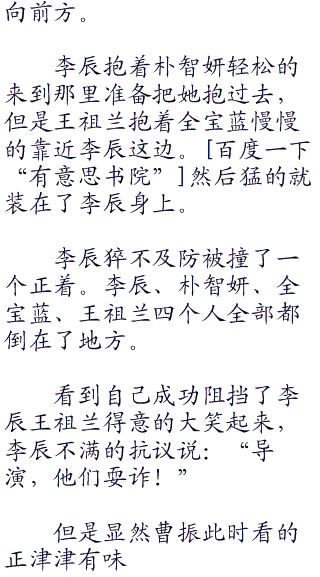 向前方。
李辰抱着朴智妍轻松的
来到那里准备把她抱过去，
但是王祖兰抱着全宝蓝慢慢
的靠近李辰这边。[百度一下
“有意思书院”]然后猛的就
装在了李辰身上。
李辰猝不及防被撞了一
个正着。李辰、朴智妍、全
宝蓝、王祖兰四个人全部都
倒在了地方。
看到自己成功阻挡了李
辰王祖兰得意的大笑起来，
李辰不满的抗议说：“导
演，他们耍诈！”
但是显然曹振此时看的
正津津有味